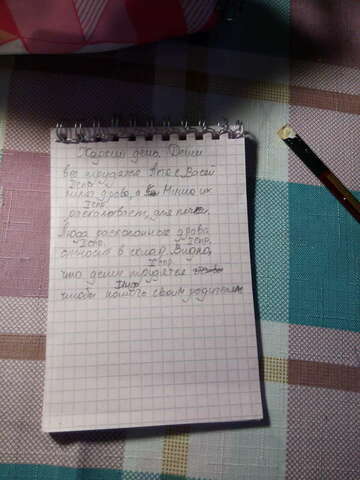 Жаркий день. Дети
все трудятся. Петя с Васей
Iспр.
пилят дрова, а Миша их
Iспр.
раскалывает, для печки,
Люба расколотые дрова
Iспр. Iспр.
относит в склад. Видно,
Iспр.
что дети трудятся
Iспр.
чтобы помочь своим родителям